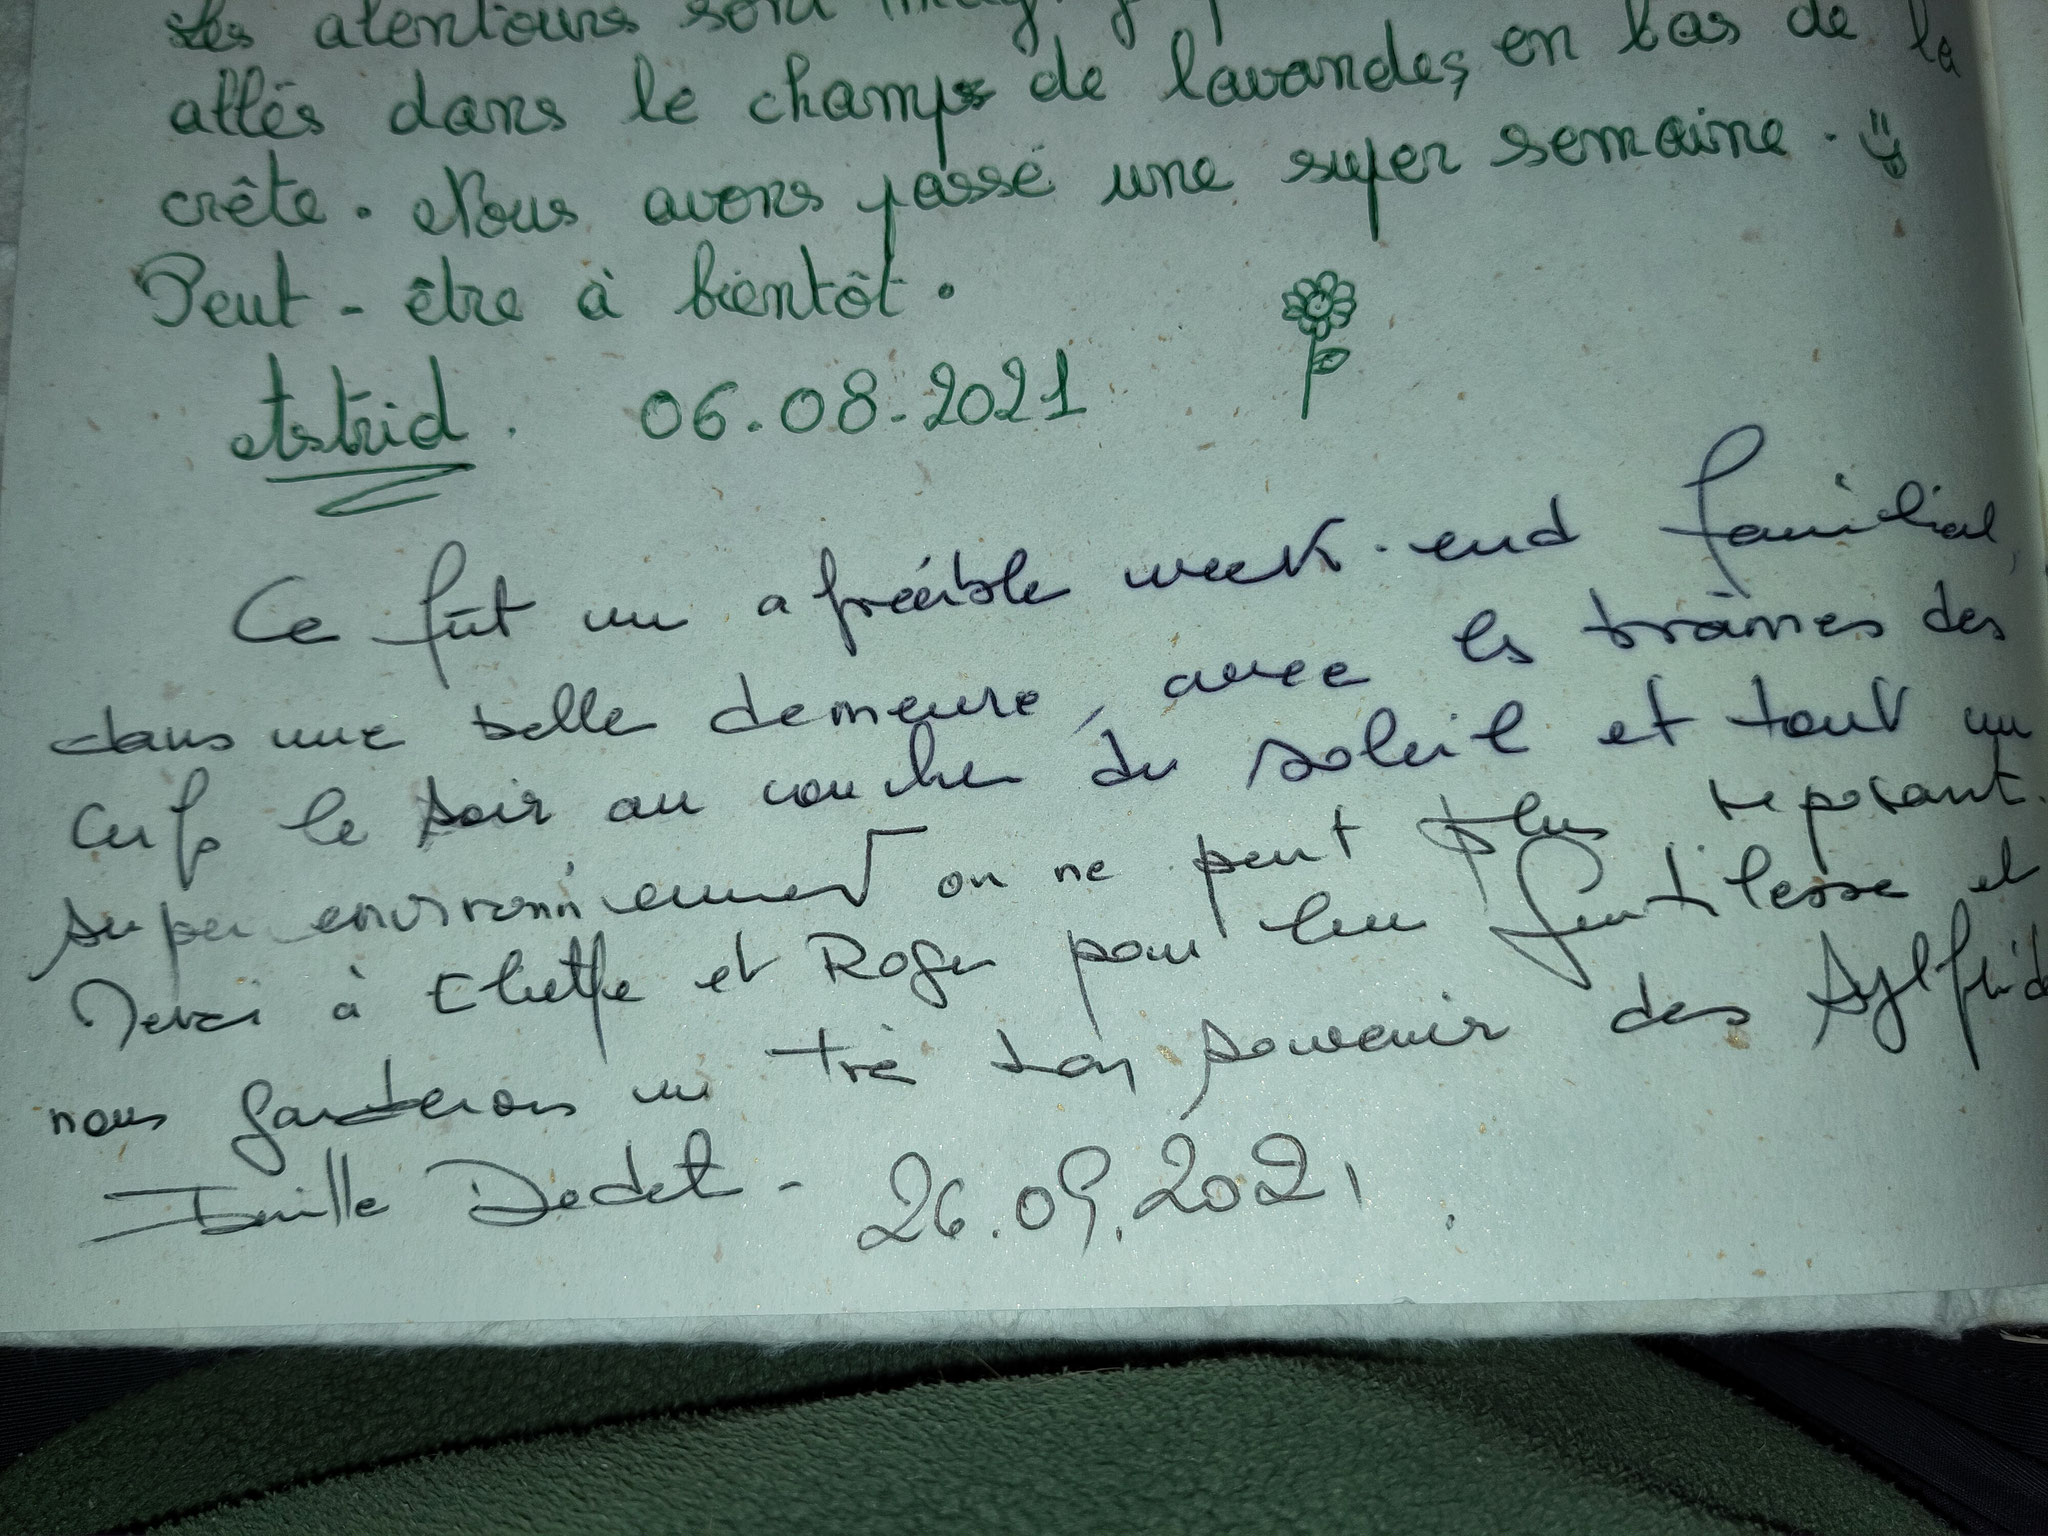 Les alentours sont
allés dans le champs de lavandes, en bas de la
crête. Nous avons passé une super semaine.
Peut-être à bientôt.
Astrid. 06.08.2021
Ce fût un agréable week-end familial,
dans une belle demeure, avec les brâmes des
cerfs le soir au coucher du soleil et tout un
super environnement on ne peut plus reposant.
Merci à et Roger pour leur gentilesse et
nous garderons un trè bon souvenir des
Famille Dedet - 26.09.2021.